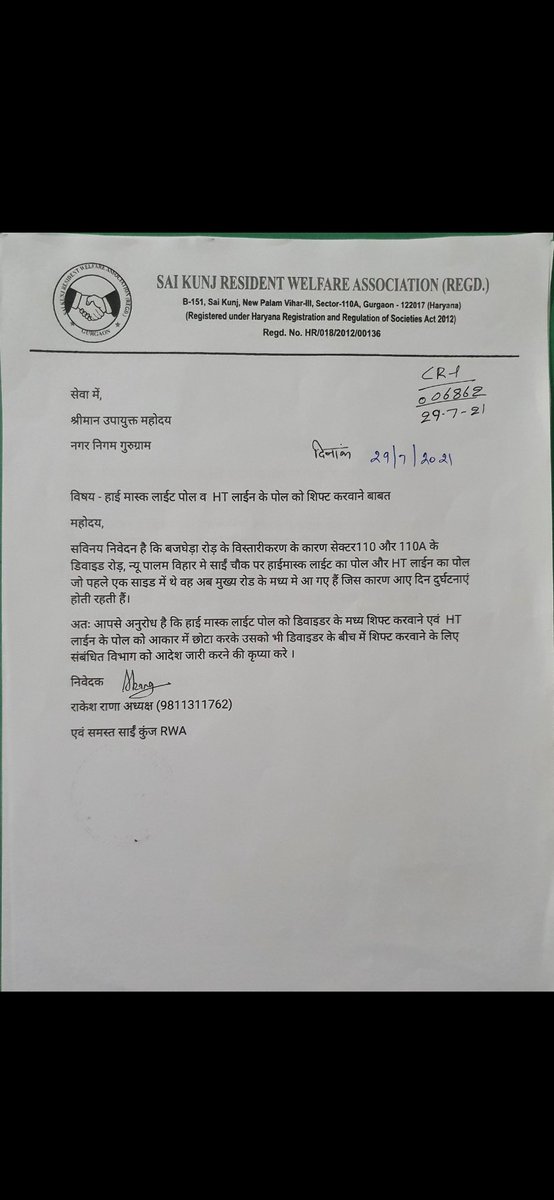 SAI KUNJ RESIDENT WELFARE ASSOCIATION (REGD.)
B-151, Sai Kunj, New Palam Vihar-III, Sector-110A, Gurgaon - 122017 (Haryana)
(Registered under Haryana Registration and Regulation of Societies Act 2012)
Regd. No. HR/018/2012/00136
SAI KUNJ RESIDENT WELFARE ASSOCIATION (REGD.)
GURGAON
CR-1
006862
29-7-21
सेवा में,
श्रीमान उपायुक्त महोदय
नगर निगम गुरुग्राम
दिनांक 29/7/2021
विषय - हाई मास्क लाईट पोल व HT लाईन के पोल को शिफ्ट करवाने बाबत
महोदय,
सविनय निवेदन है कि बजघेड़ा रोड़ के विस्तारीकरण के कारण सेक्टर110 और 110A के
डिवाइड रोड़, न्यू पालम विहार मे साईं चौक पर हाईमास्क लाईट का पोल और HT लाईन का पोल
जो पहले एक साइड में थे वह अब मुख्य रोड के मध्य मे आ गए हैं जिस कारण आए दिन दुर्घटनाएं
होती रहती हैं।
अतः आपसे अनुरोध है कि हाई मास्क लाईट पोल को डिवाइडर के मध्य शिफ्ट करवाने एवं HT
लाईन के पोल को आकार में छोटा करके उसको भी डिवाइडर के बीच में शिफ्ट करवाने के लिए
संबंधित विभाग को आदेश जारी करने की कृप्या करे ।
निवेदक
राकेश राणा अध्यक्ष (9811311762)
एवं समस्त साईं कुंज RWA